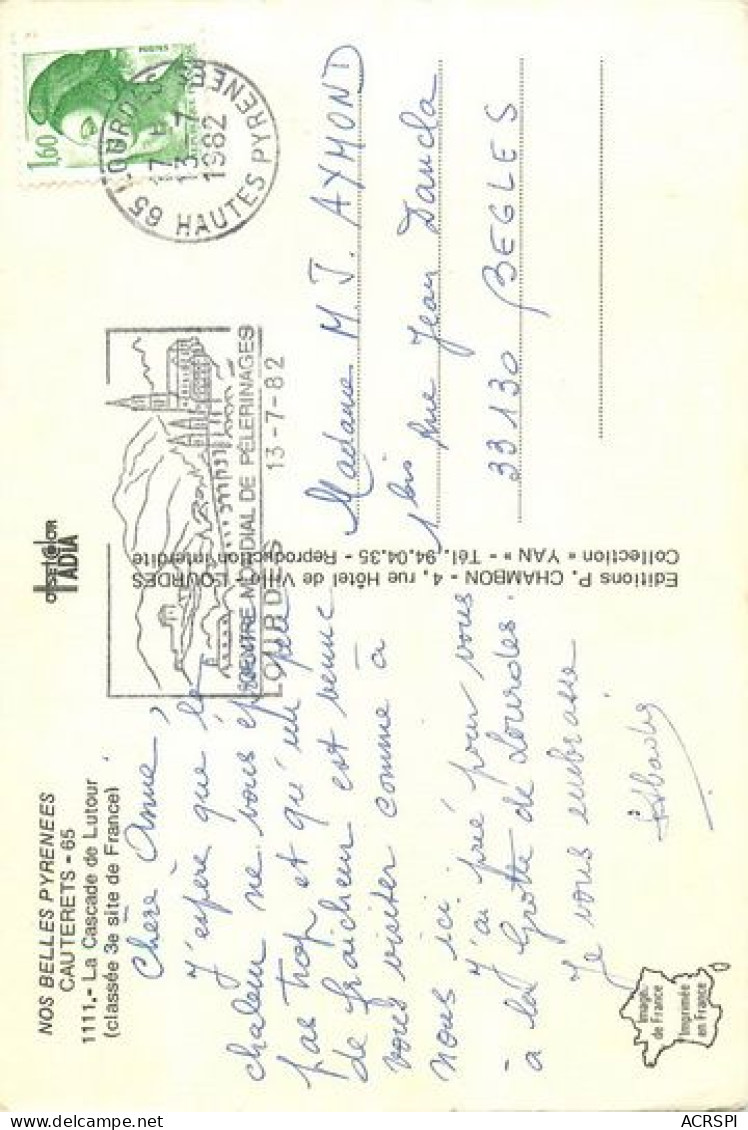 NOS BELLES PYRENEES
CAUTERETS - 65
1111.- La Cascade de Lutour
(classée 3e site de France)
Chère Anne,
J'espère que la
chaleur ne vous
pas trop et qu'un peu
de fraicheur est venue
vous visiter comme à
nous ici.
J'ai prié pour vous
- à la Grotte de Lourdes.
Je vous embrasse
Image. de France
Imprimée en France
OFFSET COLOR
IADIA
Editions P. CHAMBON - 4, rue Hôtel de Ville - LOURDES
Collection « YAN » - Tél. 94.04.35 - Reproduction interdite
LOURDES
CENTRE MONDIAL DE PÈLERINAGES
13-7-82
1,60
65 LOURDES
HAUTES PYRENEES
17 H
13-7
1982
Madame M. J. AYMOND
1 bis rue Jean Daucla
33130 BEGLES
ACRSPI